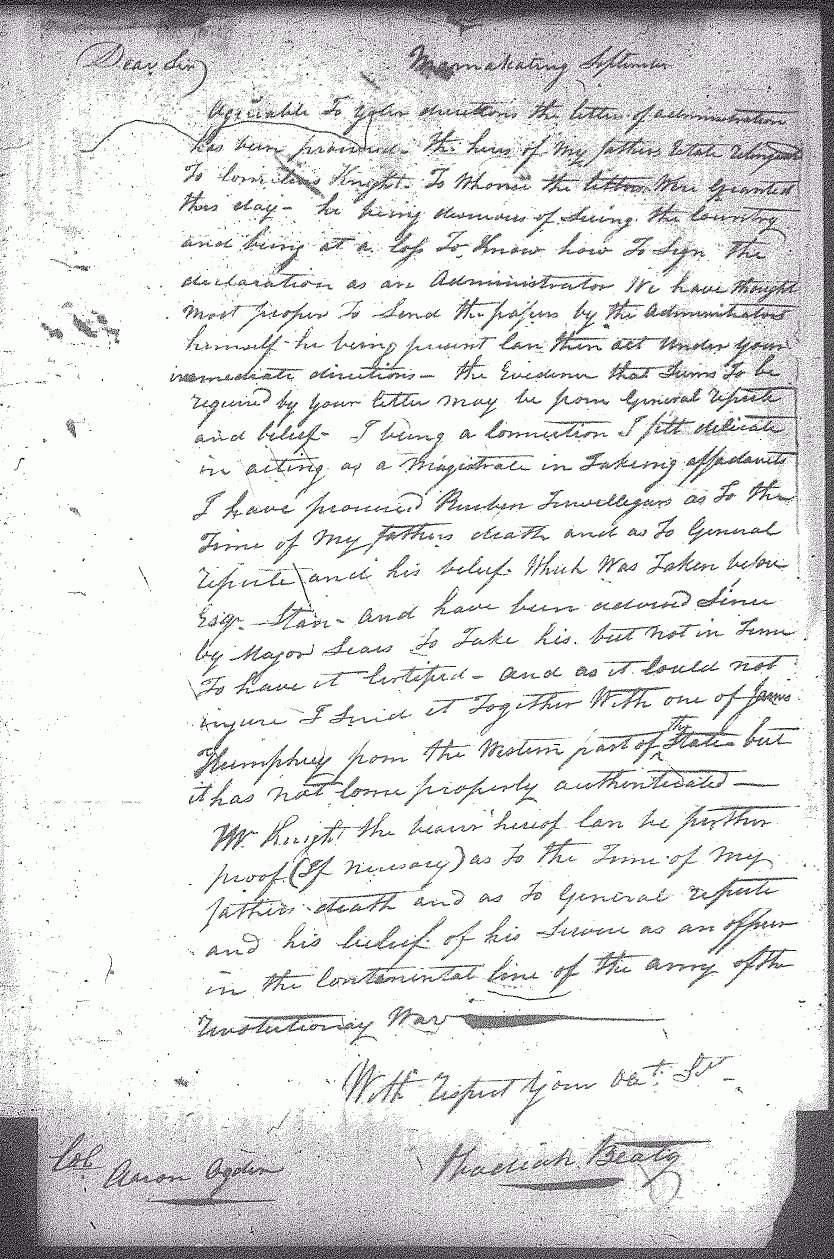 Dear Sir Mamakating September
Agreeable To your directions the letter of administration
has been procured. the heirs of My fathers Estate relinquish
To Cornelius Knight. To Whome the letters Were Granted
this day - he being desireous of Seeing the Country
and being at a loss To Know how To Sign the
declaration as an Administrator We have thought
most proper To Send the papers by the Administrator
himself he being present Can then act Under your
immediate directions - the Evidence that Seems To be
required by your letter may be from General repute
and belief - I being a Connection I felt delicate
in acting as a Magistrate in Takeing affadavits
I have procured Reuben Terwillegars as To the
Time of My fathers death and as To General
repute and his belief. Which Was Taken before
Esqr. and have been advised Since
by Major Sears To Take his. but not in Time
To have it Certified - and as it Could not
injure I Send it Together With one of James
Humphrey from the Western part of the State but
it has not Come properly authenticated -
Mr. Knight the bearer hereof Can be further
proof (If necesary) as To the Time of My
fathers death and as To General repute
and his belief of his Service as an officer
in the Continental line of the army of the
Revolutionay War
With respect Your Obt. St -
Col Aaron Ogden Beaty